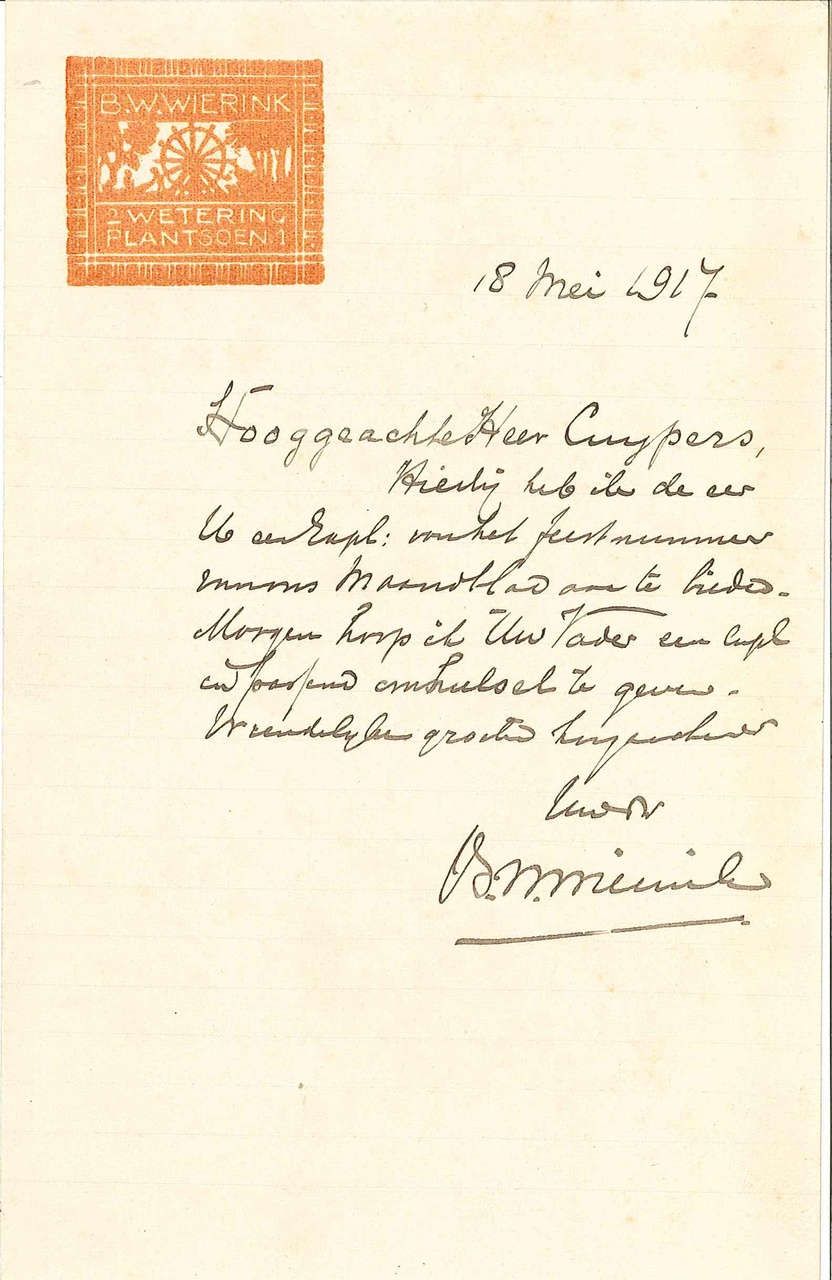 B.W.WIERINK
2e WETERING
PLANTSOEN 1
18 Mei 1917
Hooggeachte Heer Cuypers,
Hierbij heb ik de eer
U een Expl: van het feestnummer
van ons Maandblad aan te bieden.
Morgen hoop ik Uw Vader een expl
in passend omhulsel te geven.
Vriendelijke groeten hoogachtend
Uw dr
B.W.Wierink